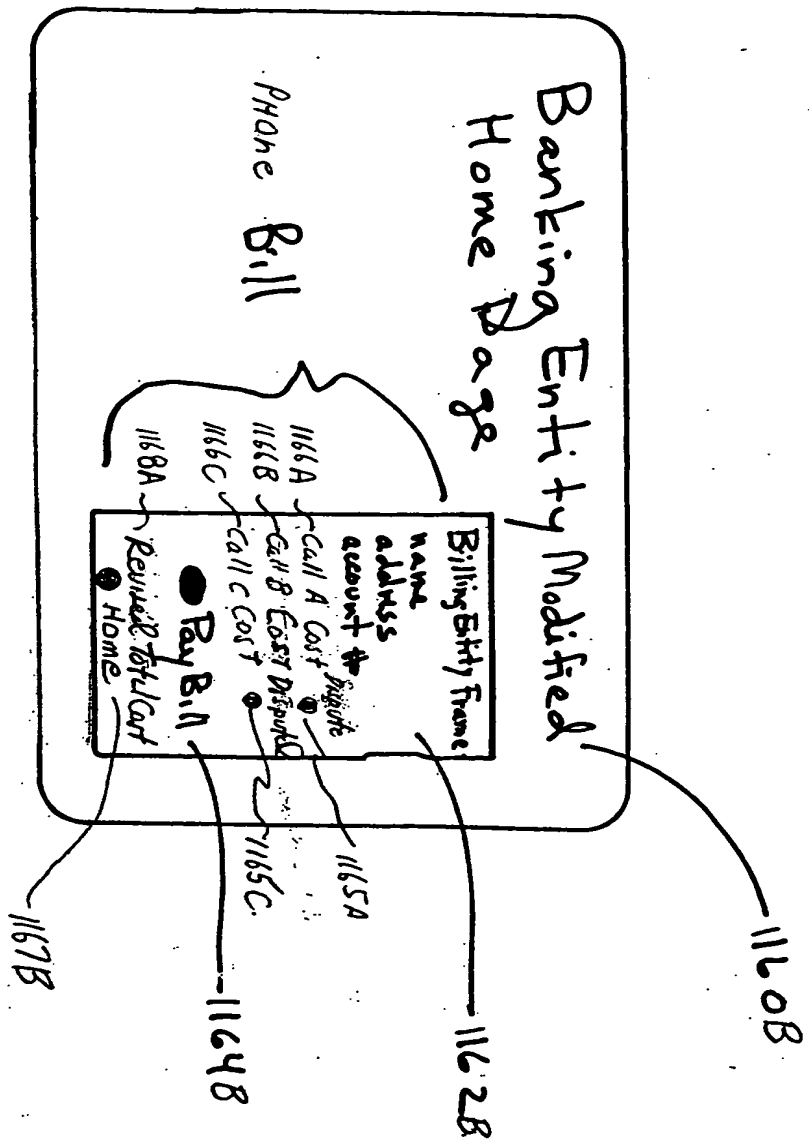 Banking Entity Modified
Home Page
Phone Bill
Billing Entity Frame
name
address
account #
1166A Call A Cost Dispute
1166B Call B Cost Disputed
1166C Call C Cost
Pay Bill
1168A Revised Total Cost
Home
1160B
1162B
1165A
1165C
1164B
1167B